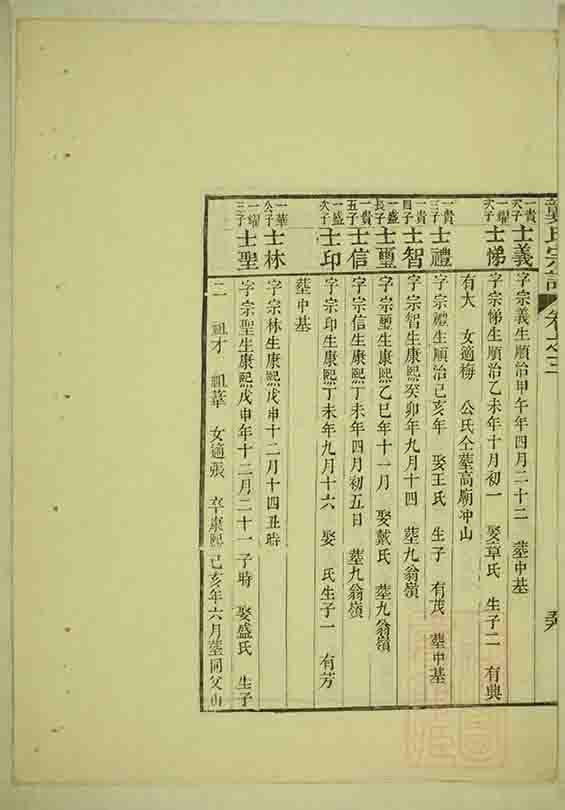 氏宗譜 卷之三
一貴次子 士義 字宗義生順治甲午年四月二十二 塟中基
一耀次子 士悌 字宗悌生順治乙未年十月初一 娶章氏 生子二 有典
有大 女適梅 公氏仝塟高廟冲山
一貴三子 士禮 字宗禮生順治己亥年 娶王氏 生子 有茂 塟中基
一貴四子 士智 字宗智生康熙癸卯年九月十四 塟九翁嶺
一盛長子 士璽 字宗璽生康熙乙巳年十一月 娶戴氏 塟九翁嶺
一貴五子 士信 字宗信生康熙丁未年四月初五日 塟九翁嶺
一盛次子 士印 字宗印生康熙丁未年九月十六 娶 氏生子一 有芳
塟中基
一華公子 士林 字宗林生康熙戊申十二月十四丑時
一耀三子 士聖 字宗聖生康熙戊申年十二月二十一子時 娶盛氏 生子
二 祖才 祖華 女適張 卒康熙己亥年六月塟同父山